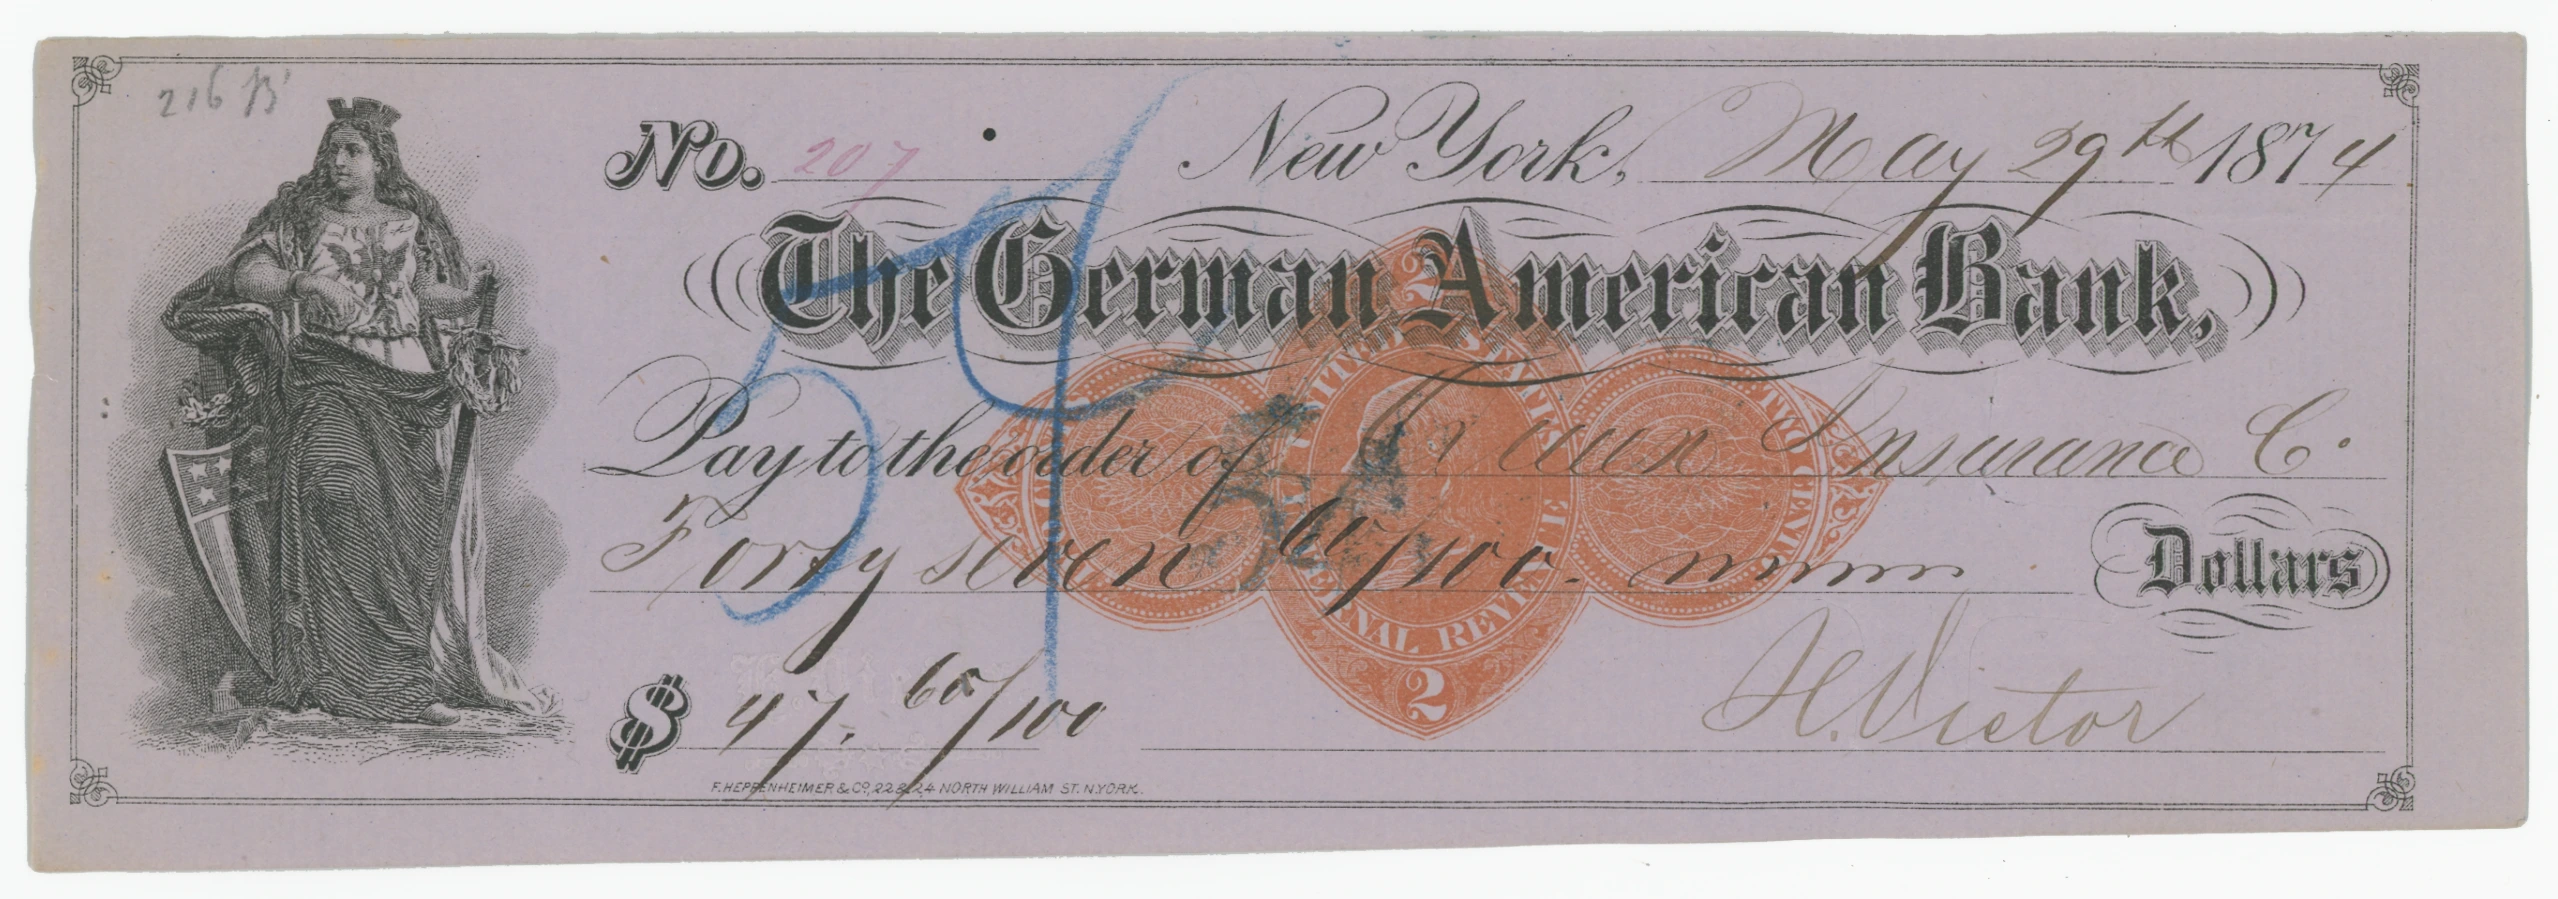 216 B
No. 207 New York, May 29th 1874
The German American Bank,
Pay to the order of Insurance Co.
Forty seven 60/100. Dollars
$ 47. 60/100 H. Victor
F. HEPPENHEIMER & CO, 22 & 24 NORTH WILLIAM ST. N.YORK.
54
2
UNITED STATES
TWO CENTS
INTERNAL REVENUE
2